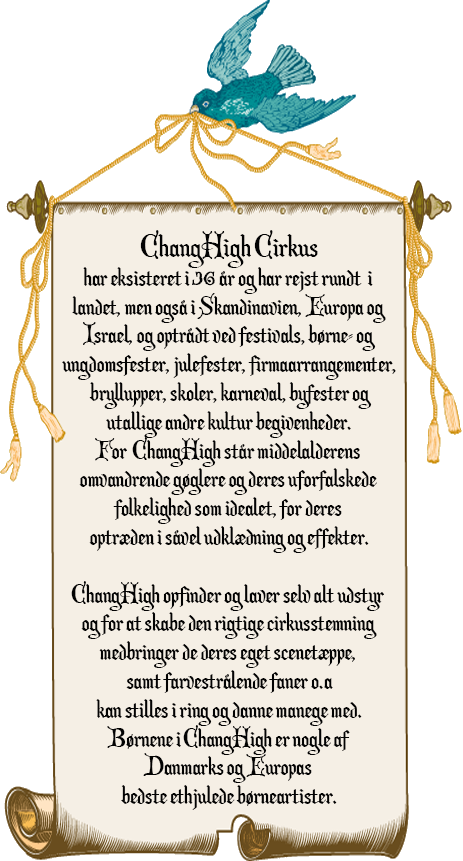 ChangHigh Cirkus
har eksisteret i 36 år og har rejst rundt i
landet, men også i Skandinavien, Europa og
Israel, og optrådt ved festivals, børne- og
ungdomsfester, julefester, firmaarrangementer,
bryllupper, skoler, karneval, byfester og
utallige andre kultur begivenheder.
For ChangHigh står middelalderens
omvandrende gøglere og deres uforfalskede
folkelighed som idealet, for deres
optræden i såvel udklædning og effekter.
ChangHigh opfinder og laver selv alt udstyr
og for at skabe den rigtige cirkusstemning
medbringer de deres eget scenetæppe,
samt farvestrålende faner o.a
kan stilles i ring og danne manege med.
Børnene i ChangHigh er nogle af
Danmarks og Europas
bedste ethjulede børneartister.